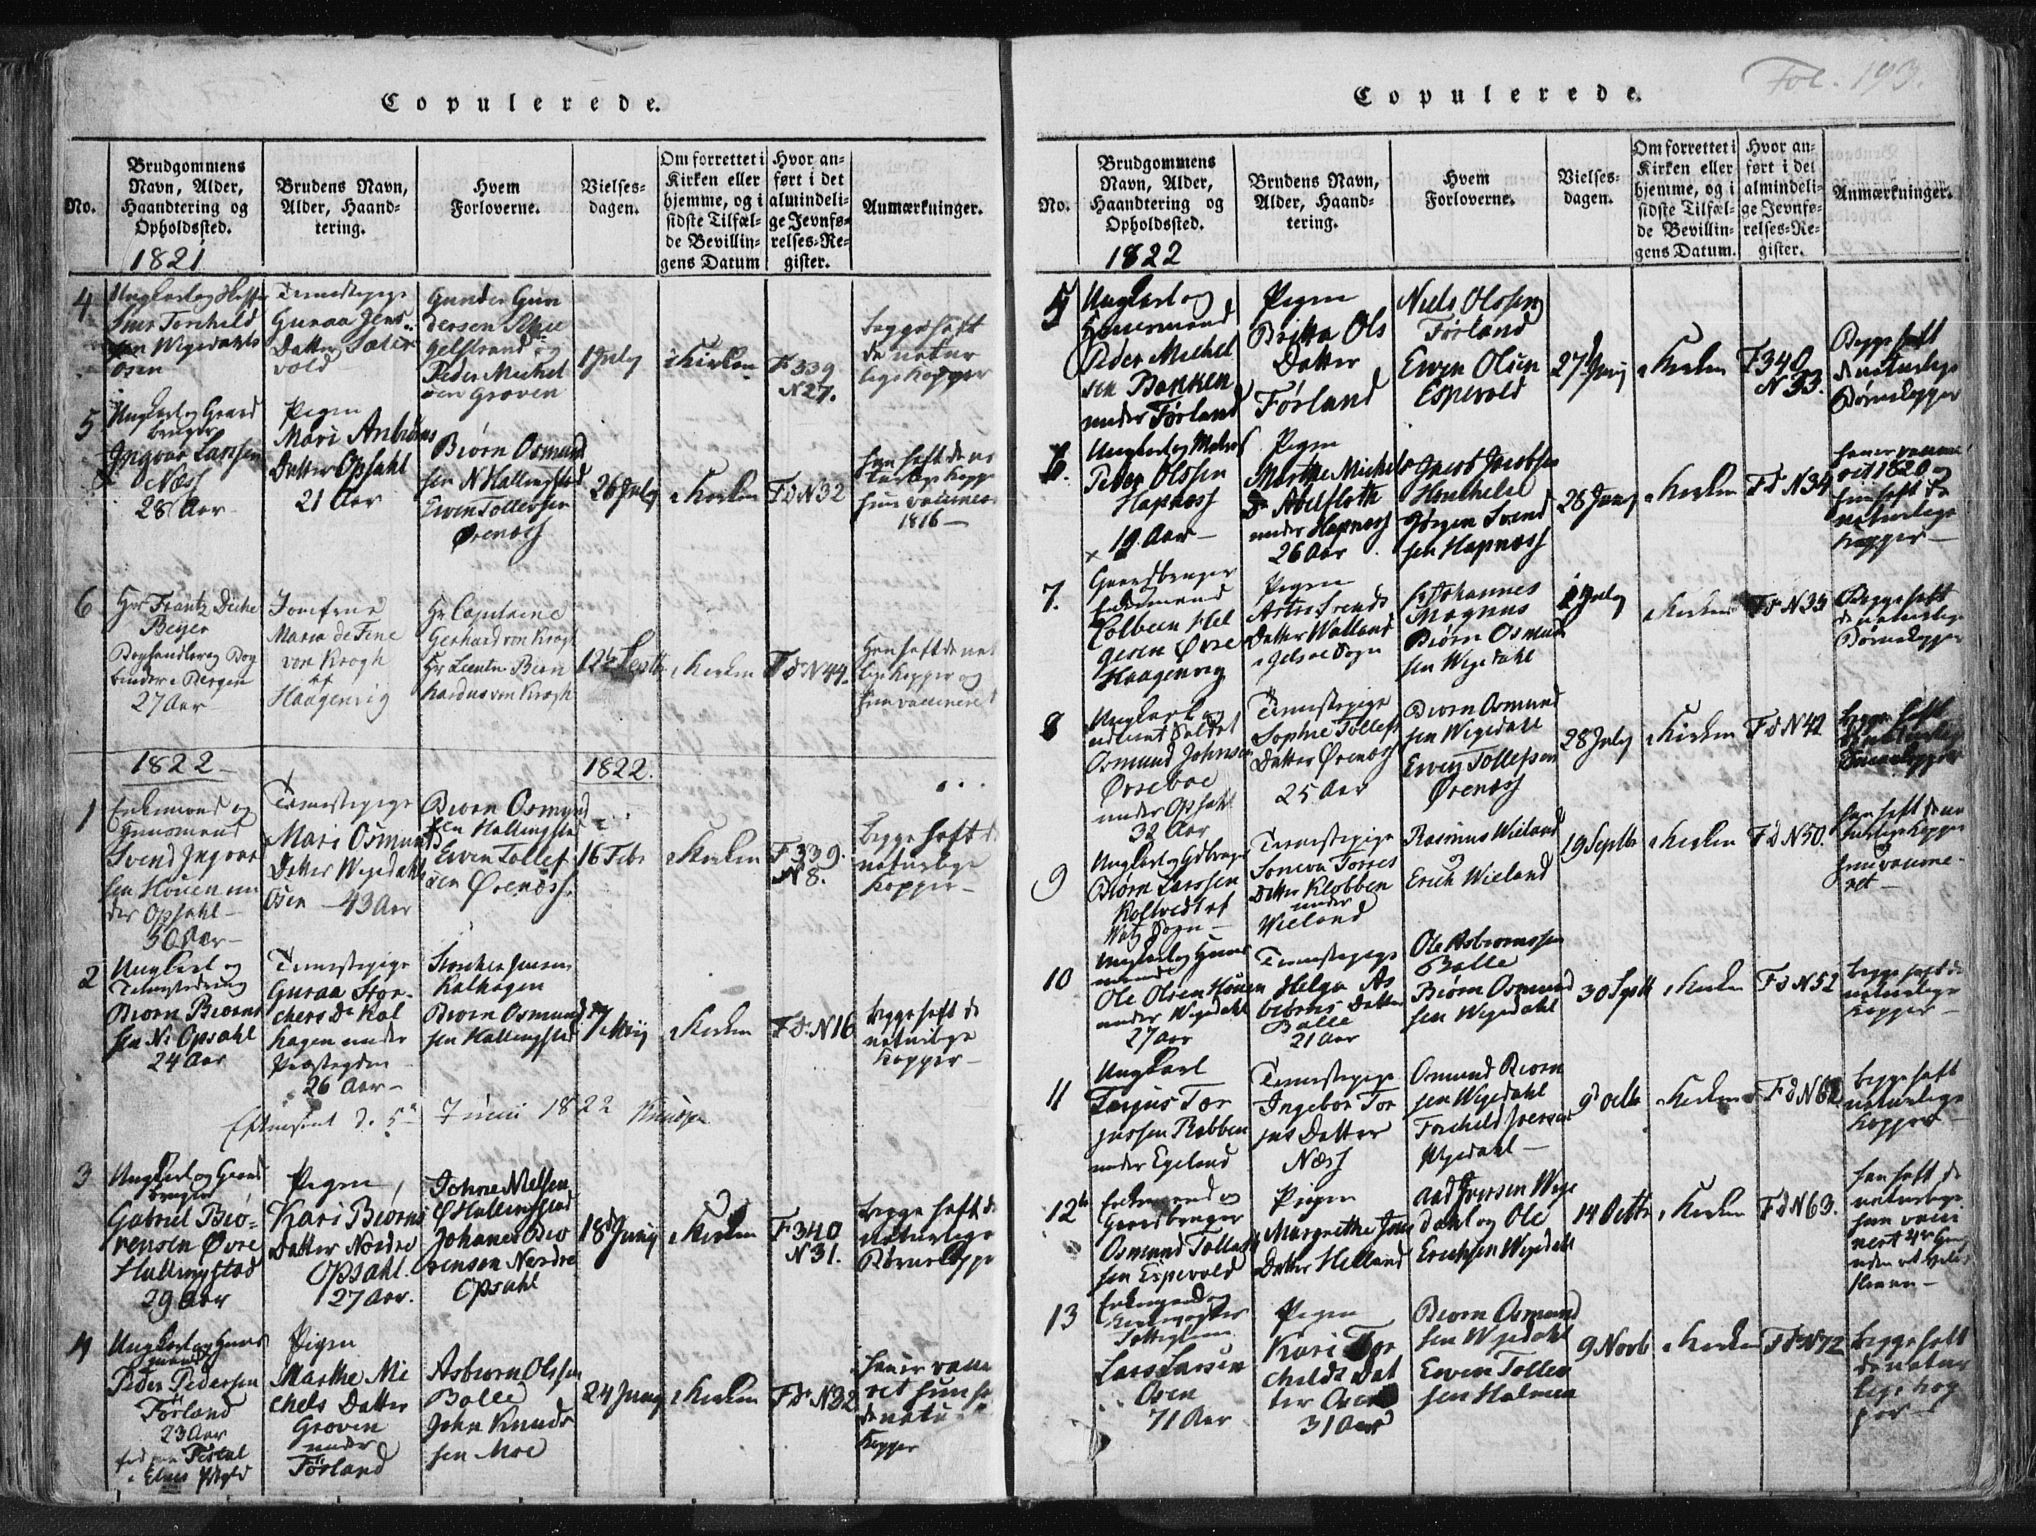 Copulerede.
No.
Brudgommens
Navn, Alder,
Haandtering og
Opholdssted.
Brudens Navn,
Alder, Haand-
tering.
Hvem
Forloverne.
Vielses-
dagen.
Om forrettet i
Kirken eller
hjemme, og i
sidste Tilfæl-
de Bevillin-
gens Datum
Hvor an-
ført i det
almindeli-
ge Jevnfø-
relses-Re-
gister.
Anmærkninger.
1821
4
Ungkarl og
Torchild
Wigedahls
osen
Tienestepige
Guraa Jens
Datter Sæter
vold
Gunder Gun
dersen
gelstrand og
Peder Michel
sen Groven
1 July
i Kirken
F 339
N 27.
begge haft
de natur
lige Kopper
5
Ungkarl og Gaard
bruger
Ingvar Larssen
Næss
28 Aar
Pigen
Mari Anbiørns
Datter Opsahl
21 Aar
Biørn Osmund
sen N Hallingstad
Ewen Tollefsen
Ørenæss
26 July
i Kirken
F d N 32
han haft de na
turlige Kopp
hun vaccineret
1816
6
Hr Frantz Deche
Beyer
Boghandler og Bog
binder i Bergen
27 Aar
Jomfrue
Maria de Fine
von Krogh
af
Haagenvig
Hr Capitaine
Gerhard von Krogh
Hr Lieutn Bern
hardus von Krogh
12te Septbr
i Kirken
F d N 44.
Han haft de nat
lige Kopper og
hun vaccineret
1822
1822.
1
Enkemand og
Huusmand
Svend Ingvar
sen Houen un
der Opsahl
50 Aar
Tienestepige
Mari Osmunds
Datter Wigedahls
Osen 43 Aar
Biørn Osmund
sen Hallingstad
Ewen Tollef
sen Ørenæss
16 Febr
i Kirken
F 339.
N 8.
Begge haft de
naturlige
Kopper
2
Ungkarl og
Biørn Biørns
sen N. Opsahl
24 Aar
Tienestepige
Guraa Stor-
chers Dr Kal
hagen under
Præstegden
26 Aar
Storcher Jensen
Kalhagen
Biørn Osmund
sen Hallingstad
7 Maij
i Kirken
F d N 16
begge haft de
naturlige
Kopper
d. 5te Juni 1822
3
Ungkarl og Gaard
bruger
Gabriel Biø-
rensen Øvre
Hallingstad
29 Aar
Pigen
Kari Biørns
Datter Nordre
Opsahl.
27 Aar.
Johne Nielsen
Ø Hallingstad
Johanes Biø
rensen Nordre
Opsahl
18de Junij
i Kirken
F 340
N 31.
begge haft de
naturlige
Børnekoppe
4
Ungkarl og Huus
mand
Peder Pedersen
Førland
23 Aar
Pigen
Marthe Mi
chels Datter
Groven
under
Førland
Asbiørn Olssen
Balle
John Knuds
sen Moe
24 Juny
i Kirken
F d N 32
han er vacci
ret hun ha
de natu
Kopper
Copulerede.
Fol. 193.
No.
Brudgommens
Navn, Alder,
Haandtering og
Opholdssted.
Brudens Navn,
Alder, Haand-
tering.
Hvem
Forloverne.
Vielses-
dagen.
Om forrettet i
Kirken eller
hjemme, og i
sidste Tilfæl-
de Bevillin-
gens Datum.
Hvor an-
ført i det
almindeli-
ge Jevnfø-
relses-Re-
gister.
Anmærkninger.
1822
5
Ungkarl og
Huusmand
Peder Michel
sen Bakken
under Førland
Pigen
Britta Ols
Datter
Førland
Niels Olssen
Førland
Ewen Olsen
Espevold
27 Junij
i Kirken
F 340
N 33.
Begge haft
de naturlige
Børnekopper
6.
Ungkarl og Matros
Peder Olssen
Hapnæss
19 Aar
Pigen
Marthe Michels
Dr Abelfloth
under Hapnæss
26 Aar
Jacob Jacobsen
Jørgen Svend
sen Hapnæss
28 Juny
i Kirken
F d N 34
han er vaccine
ret 1820 og
hun haft de
naturlige
Kopper
7.
Gaardbruger
Enkemand
Colbeen Hel
gesen Øvre
Haagenvig
Pigen
Astri Svends
Datter Walland
i Jelsøe Sogn
Johannes
Magnus
Biørn Osmund
sen Wigedahl
2 July
i Kirken
F d N 35
Begge haft
de naturlige
Børnekopper
8
Ungkarl og
udtient Soldat
Osmund Johnsen
Ørseboe
under Opsahl
32 Aar
Tienestepige
Sophie Tollefs
Datter Ørenæss
25 Aar
Biørn Osmund
sen Wigedahl
Ewen Tollefsen
Ørenæss
28 July
i Kirken
F d N 42
begge haft
de naturlige
Børnekopper
9
Biørn Larssen
Kolwedt af
Wats Sogn
Tienestepige
Soneva Torres
Datter Klobben
under
Wieland
Rasmus Wieland
og
Erich Wieland
19 Septbr
i Kirken
F d N 50.
han haft de na
turlige Kopper
hun vaccine-
ret
10
Ungkarl og Huus
mand
Ole Olsen Houen
under Wigedahl
27 Aar
Tienestepige
Helga As
biørns Datter
Balle
21 Aar
Ole Asbiørnssen
Balle
Biørn Osmund
sen Wigedahl
30 Septb
i Kirken
F d N 52
begge haft de
naturlige
Kopper
11
Ungkarl
Torjus Tor
jussen Robben
under Egeland
Tienestepige
Ingebor Tor
jus Datter
Næss
Osmund Biørn
sen Wigedahl
Torchild Iversen
Wigedahl
9d Octbr
i Kirken
F d N 62
begge haft
naturlige
Kopper
12te
Enkemand og
Gaardbruger
Osmund Tollef
sen Espevold
Pigen
Margrethe Jens
Datter Helland
Aad Iversen Wige
dahl og Ole
Erichsen Wigedahl
14 Octbr
i Kirken
F d N 63.
han haft de
naturlige
hun vacci
nert 4re Gang
uden at
13
Enkemand og
Lars Larsen
Osen
71 Aar
Pigen
Kari Tor
childs Dat
ter Osen
31 Aar
Biørn Osmund
sen Wigedahl
Ewen Tollev
sen Holmen
9 Novb
i Kirken
F d N 72
begge haft
de natur
lige Kop
per